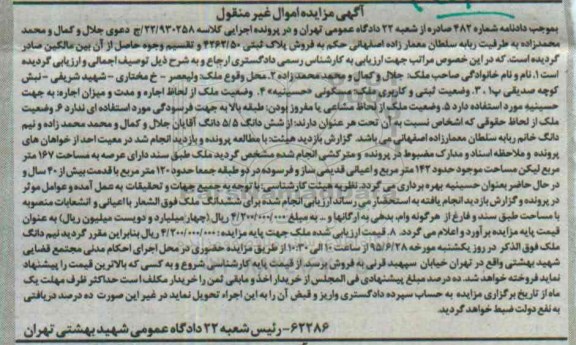 آگهی مزایده اموال غیر منقول
بموجب دادنامه شماره ۴۸۲ صادره از شعبه ۲۲ دادگاه عمومی تهران و در پرونده اجرایی کلاسه ۲۲/۹۳۰۲۵۸/ج دعوی جلال و کمال و محمد
محمدزاده به طرفیت ربابه سلطان معمار زاده اصفهانی حکم به فروش پلاک ثبتی ۴۲۶۲/۵۰ و تقسیم وجوه حاصل از آن بین مالکین صادر
گردیده است. که در این خصوص مراتب جهت ارزیابی به کارشناس رسمی دادگستری ارجاع و به شرح ذیل توصیف اجمالی و ارزیابی گردیده
است ۱. نام و نام خانوادگی صاحب ملک: جلال و کمال و محمد محمدزاده ۲. محل وقوع ملک: ولیعصر - خ مختاری - شهید شریفی - نبش
کوچه صدیقی پ۱، ۳. وضعیت ثبتی و کاربری ملک: مسکونی «حسینیه» ۴. وضعیت ملک از لحاظ اجاره و مدت و میزان اجاره: به جهت
حسینیه مورد استفاده دارد ۵. وضعیت ملک از لحاظ مشاعی یا مفروز بودن: طبقه بالا به جهت فرسودگی مورد استفاده ای ندارد ۶. وضعیت
ملک از لحاظ حقوقی که اشخاص نسبت به آن تحت هر عنوان دارند: از شش دانگ ۵/۵ دانگ آقایان جلال و کمال و محمد محمد زاده و نیم
دانگ خانم ربابه سلطان معمارزاده اصفهانی می باشد. گزارش بازدید هیئت: با مطالعه پرونده و بازدید انجام شد در معیت احد از خواهان های
پرونده و ملاحظه اسناد و مدارک مضبوط در پرونده و مترکشی انجام شده مشخص گردید ملک طبق سند دارای عرصه به مساحت ۱۶۷ متر
مربع لیکن مساحت موجود حدود ۱۴۳ متر مربع و اعیانی قدیمی ساز و فرسوده در دو طبقه جمعا حدود ۱۲۰ متر مربع با قدمت بیش از ۴۰ سال و
در حال حاضر بعنوان حسینیه بهره برداری می گردد. نظریه هیئت کارشناسی: با توجه به جمیع جهات و تحقیقات به عمل آمده و عوامل موثر
در پرونده و گزارش بازدید انجام یافته به استحضار می رساند ارزیابی انجام شده برای ششدانگ ملک فوق الشعار با اعیانی و انشعابات منصوبه
با مساحت طبق سند و فارغ از هرگونه وام، بدهی به ارگانها و .. به مبلغ ۴/۲۰۰/۰۰۰/۰۰۰ ریال (چهار میلیارد و دویست میلیون ریال) به عنوان
قیمت پایه مزایده برآورد و اعلام می گردد. ۸. قیمت ارزیابی شده ملک جهت پایه مزایده: ۴/۲۰۰/۰۰۰/۰۰۰ ریال بنابراین مقرر گردید نیم دانگ
ملک فوق الذکر در روز یکشنبه مورخه ۹۵/۶/۲۸ از ساعت ۱۰ الی ۱۰:۳۰ از طریق مزایده حضوری در محل اجرای احکام مدنی مجتمع قضایی
شهید بهشتی واقع در تهران خیابان سپهبد قرنی به فروش برسد از قیمت پایه کارشناسی شروع و به کسی که بالاترین قیمت را پیشنهاد
نماید فروخته خواهد شد. ده درصد مبلغ پیشنهادی فی المجلس از خریدار اخذ و مابقی ثمن را خریدار مکلف است حداکثر ظرف مهلت یک
ماه از تاریخ برگزاری مزایده به حساب سپرده دادگستری واریز و قبض آن را به این اجراء تحویل نماید در غیر این صورت ده درصد دریافتی
به نفع دولت ضبط خواهد گردید.
۶۲۲۸۶- رئیس شعبه ۲۲ دادگاه عمومی شهید بهشتی تهران